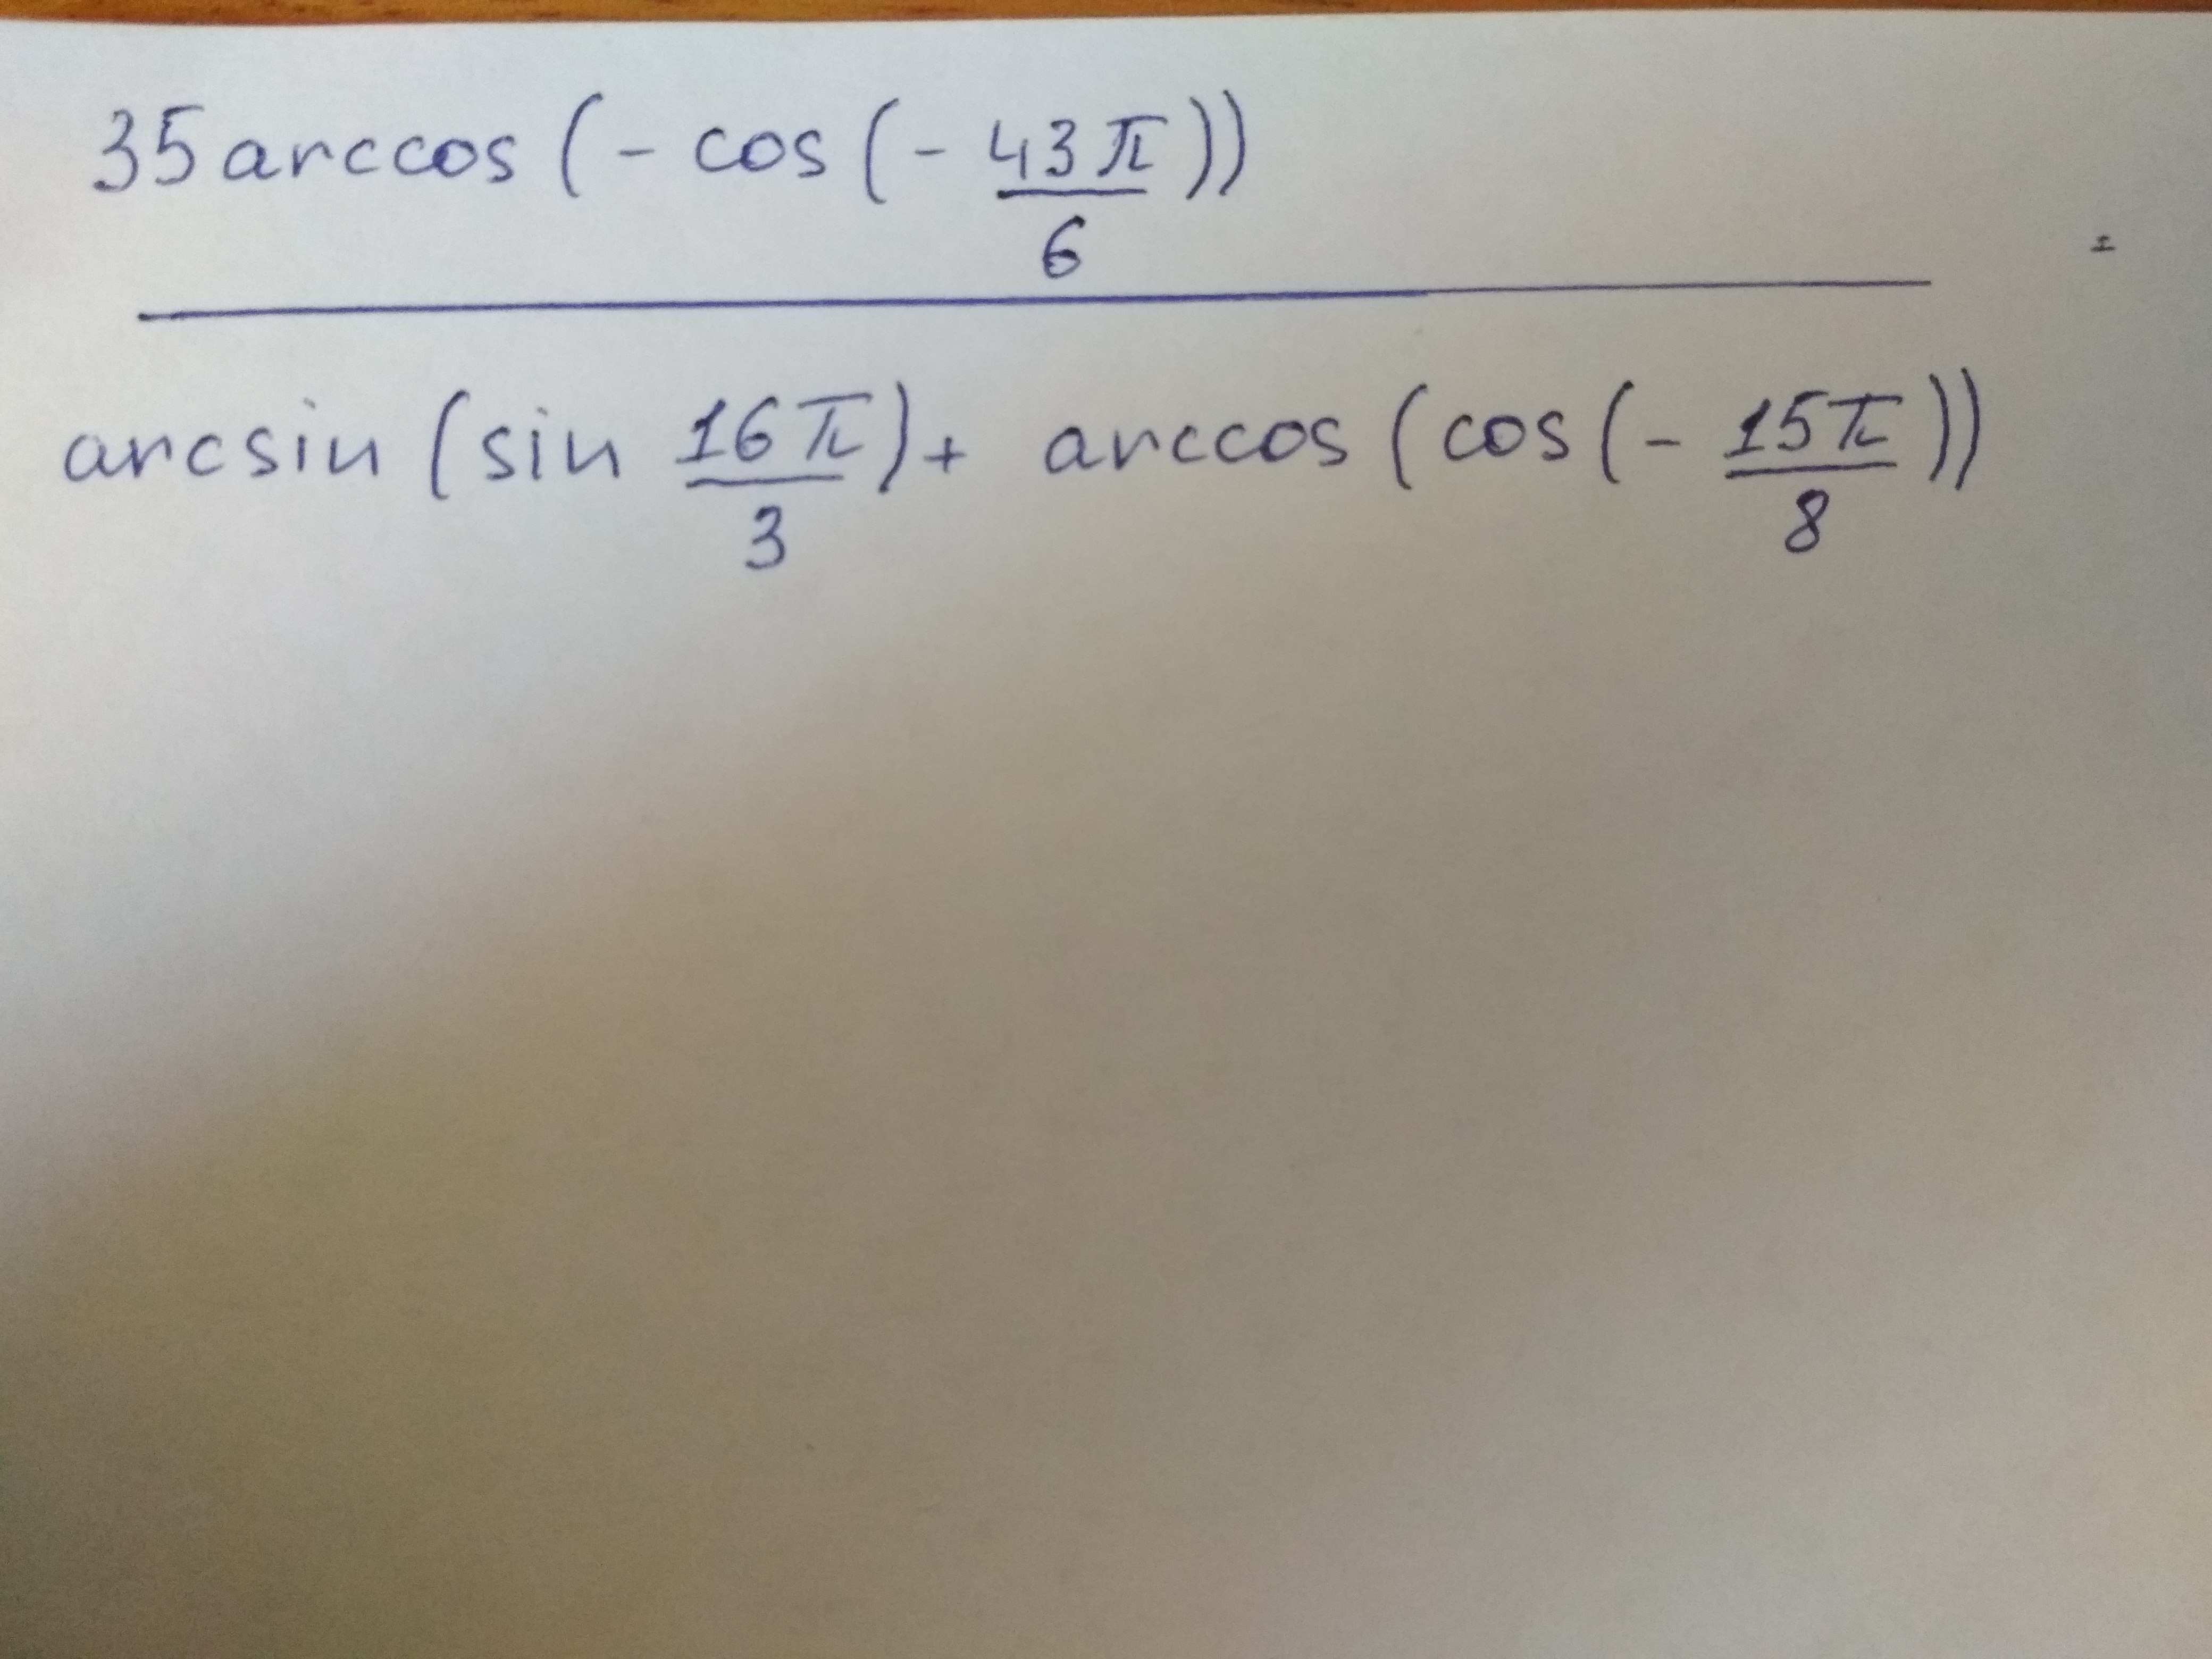 35 arccos (- cos (- 43π/6)) =
arcsin (sin 16π/3) + arccos (cos (- 15π/8))